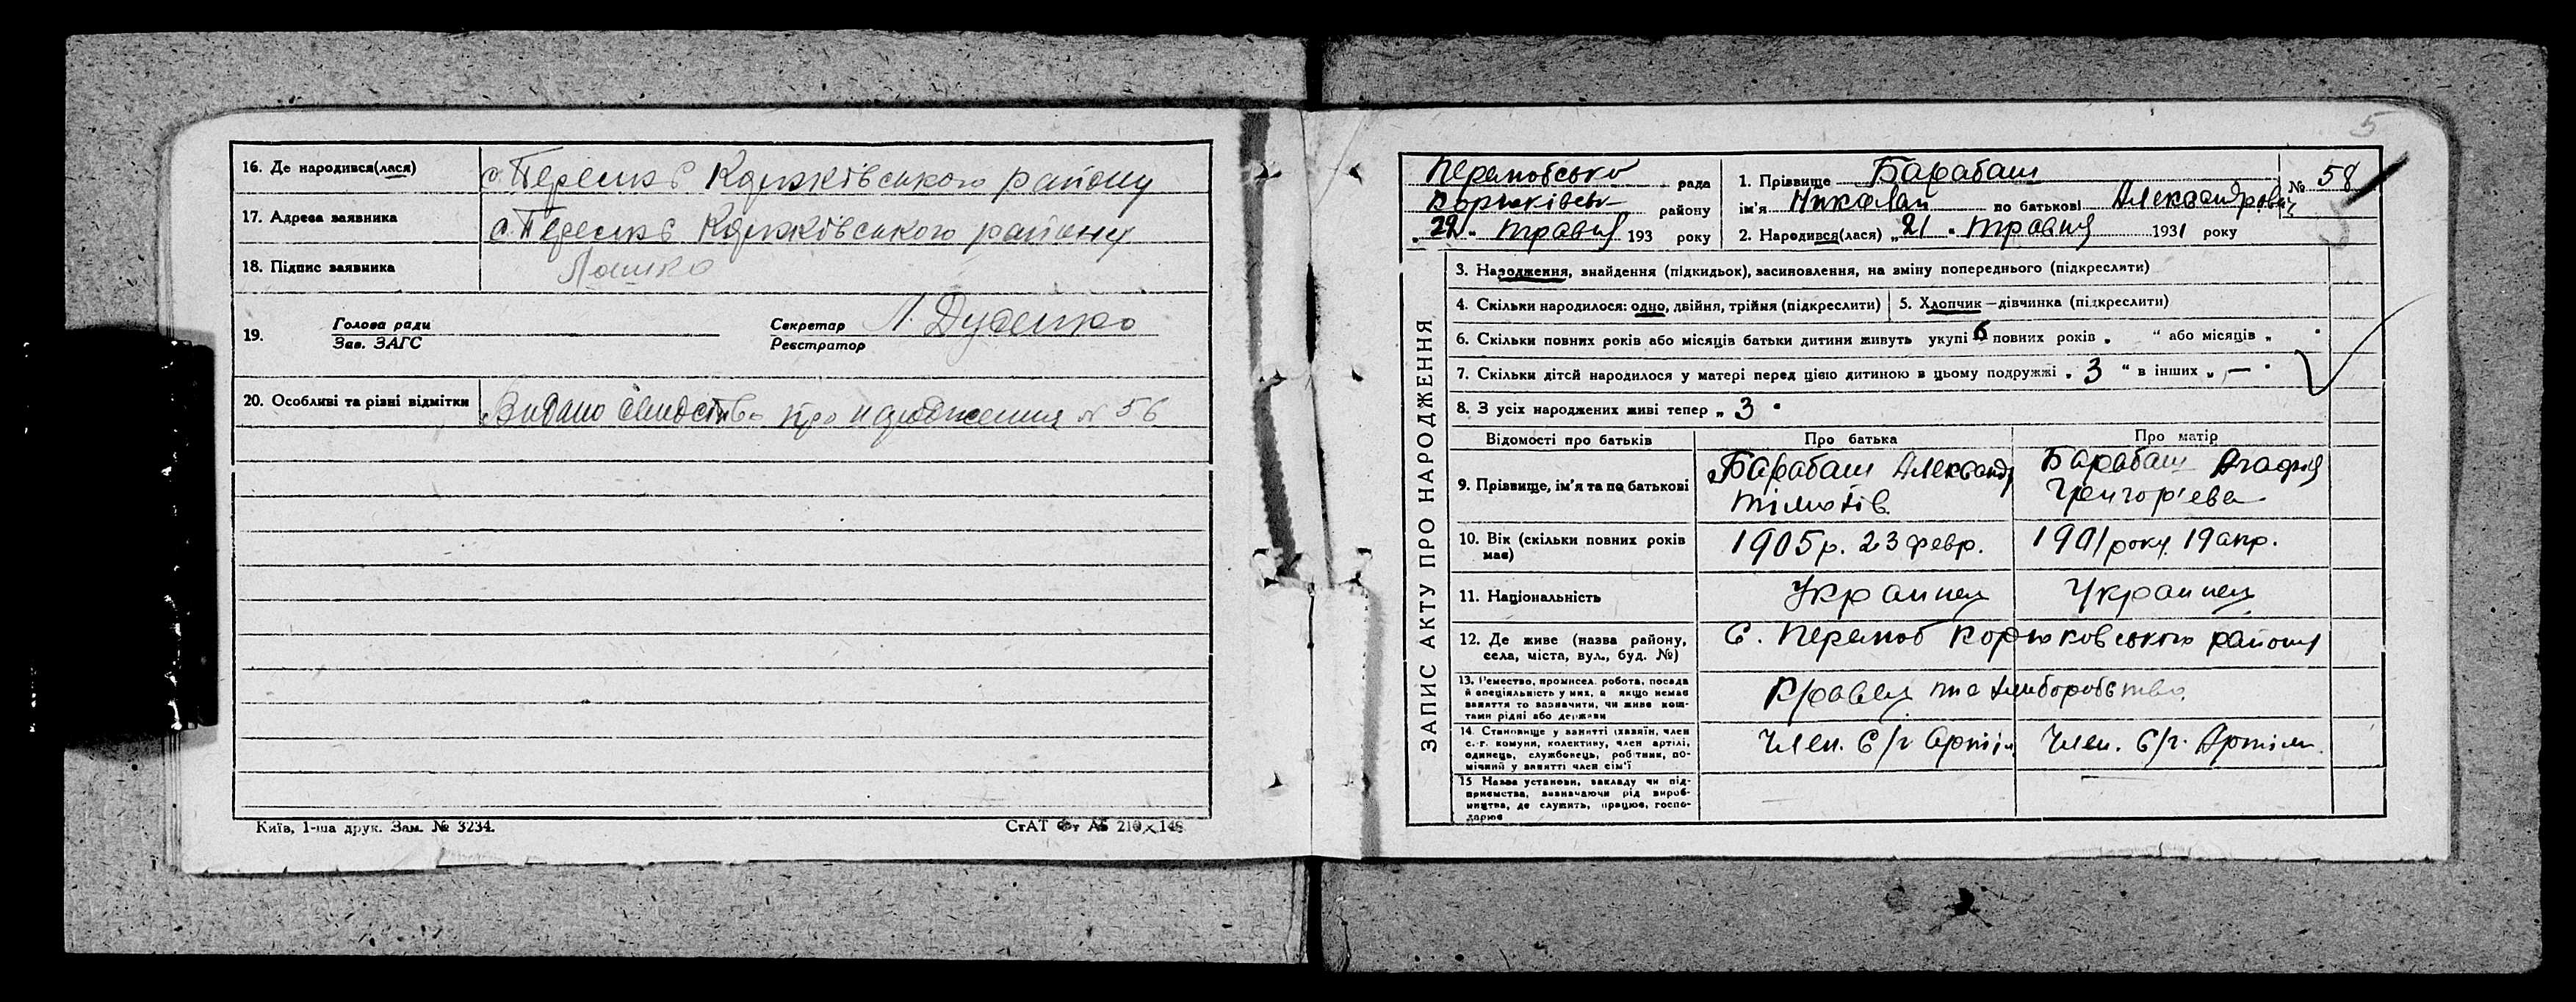 16. Де народився(лася)
с. Перелюб Корюківського району
17. Адреса заявника
с. Перелюб Корюківського району
18. Підпис заявника
Ляшко
19.
Голова ради
Зав. ЗАГС
Секретар
Реєстратор
20. Особливі та різні відмітки
Видано свидоство про народження № 56
Київ, 1-ша друк. Зам. № 3234.
СтАТ Фт А5 210×148
5
рада
Корюківськ районy
„22" травня 193 року
1. Прізвище Барабаш
№ 58
ім'я Николай по батькові Александрович
2. Народився(лася) „21" травня 1931 року
ЗАПИС АКТУ ПРО НАРОДЖЕННЯ
3. Народження, знайдення (підкидьок), засиновлення, на зміну попереднього (підкреслити)
4. Скільки народилося: одно, двійня, трійня (підкреслити)
5. Хлопчик—дівчинка (підкреслити)
6. Скільки повних років або місяців батьки дитини живуть укупі 6 повних років „ " або місяців „ "
7. Скільки дітей народилося у матері перед цією дитиною в цьому подружжі „3" в інших „—"
8. З усіх народжених живі тепер „3"
Відомості про батьків
Про батька
Про матір
9. Прізвище, ім'я та по батькові
Барабаш Александр
Тімохів.
Барабаш Агафия
Григор'ева
10. Вік (скільки повних років
має)
1905 р. 23 февр.
1901 року 19 апр.
11. Національність
Украинец
Украинец
12. Де живе (назва району,
села, міста, вул., буд. №)
С. Перелюб Корюковського району
13. Ремество, промисел, робота, посада
й спеціяльність у них, а якщо немає
заняття то зазначити, чи живе кош-
тами рідні або держави
Кравец та хлиборобство
14. Становище у занятті (хазяїн, член
с.-г. комуни, колективу, член артілі,
одинець, службовець, робітник, по-
мічний у занятті член сім'ї
Член. С/г Артіл
Член. С/г. Артіли.
15 Назва установи, закладу чи під-
приємства, зазначаючи рід вироб-
ництва, де служить, працює, госпо-
дарює